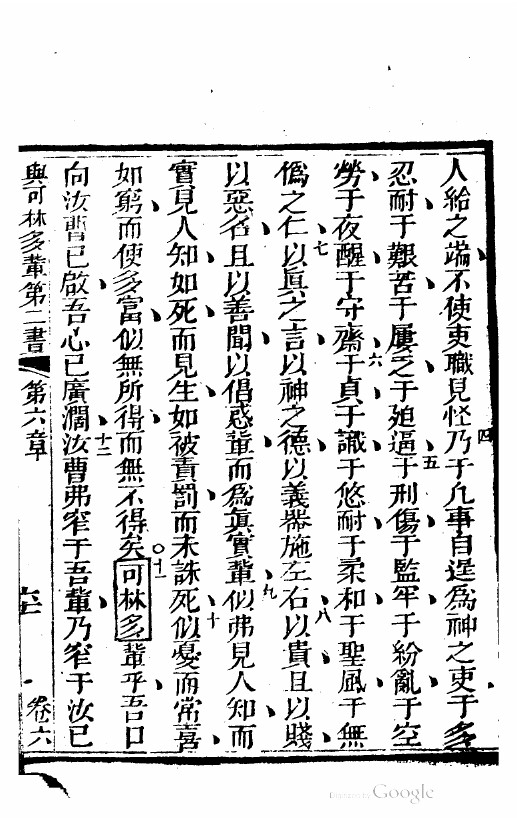 人給之端不使吏職見怪四乃于凡事自逞爲神之吏于多
忍耐于艱苦于屢乏于廹逼五于刑傷于監牢于紛亂于空
勞于夜醒于守齋六于貞于識于悠耐于柔和于聖風于無
偽之仁七以眞之言以神之德以義器施左右八以貴且以賤
以惡名且以善聞以倡惑輩而爲眞實輩九似弗見人知而
實見人知如死而見生如被責罰而未誅死十似憂而常喜
如窮而使多富似無所得而無不得矣○十一可林多輩乎吾口
向汝曹已啟吾心已廣濶十二汝曹弗窄于吾輩乃窄于汝已
與可林多輩第二書 第六章 卷六
Digitized by Google